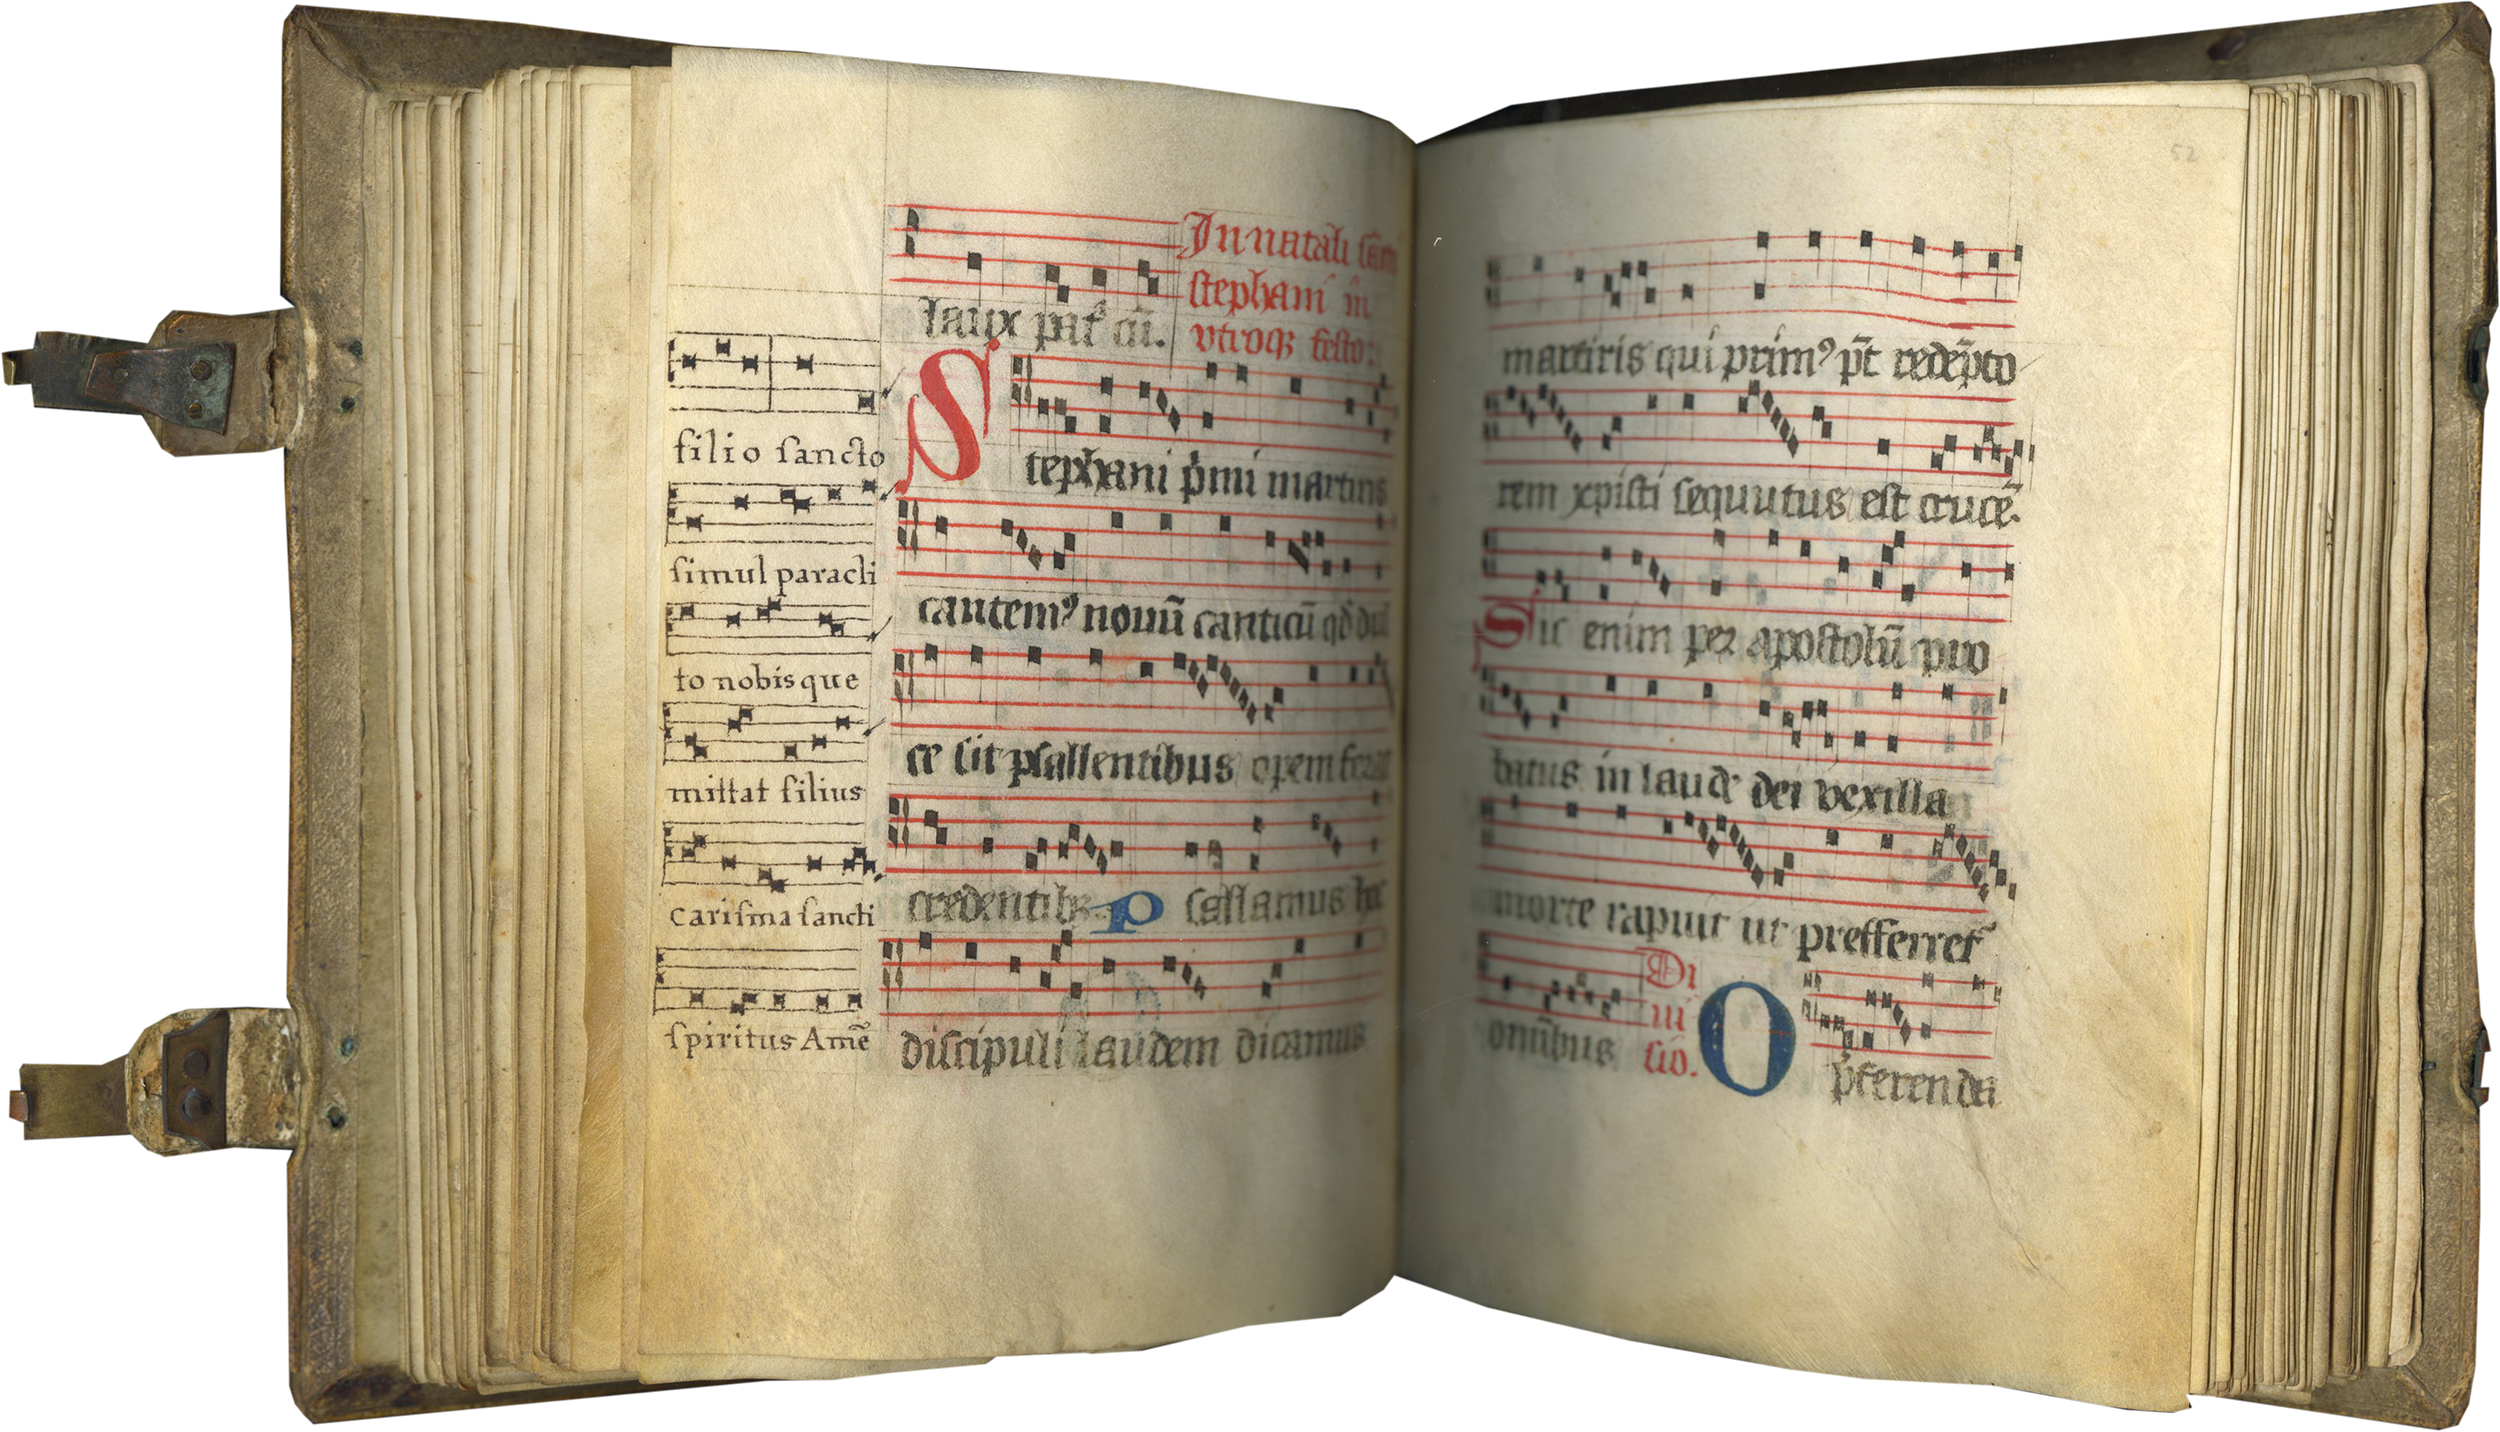 filio sancto
simul paracli
to nobisque
mittat filius
carisma sancti
spiritus Amē
In natali
stephani in
vtroqꝫ festo.
S
tephani p̄mi martiris
cantemꝰ nouū canticū qđ dul
ce sit psallentibus opem ferat
credentibꝫ. P sallamus hoc
discipuli laudem dicamus
52
martiris qui primꝰ p̄t redēpto
rem xpisti sequutus est crucē.
Sic enim per apostolū pro
batus in laude dei vexilla
morte rapuit ut prefferret
om̄ibus
Di
ui
sio.
O
p̄ferenda